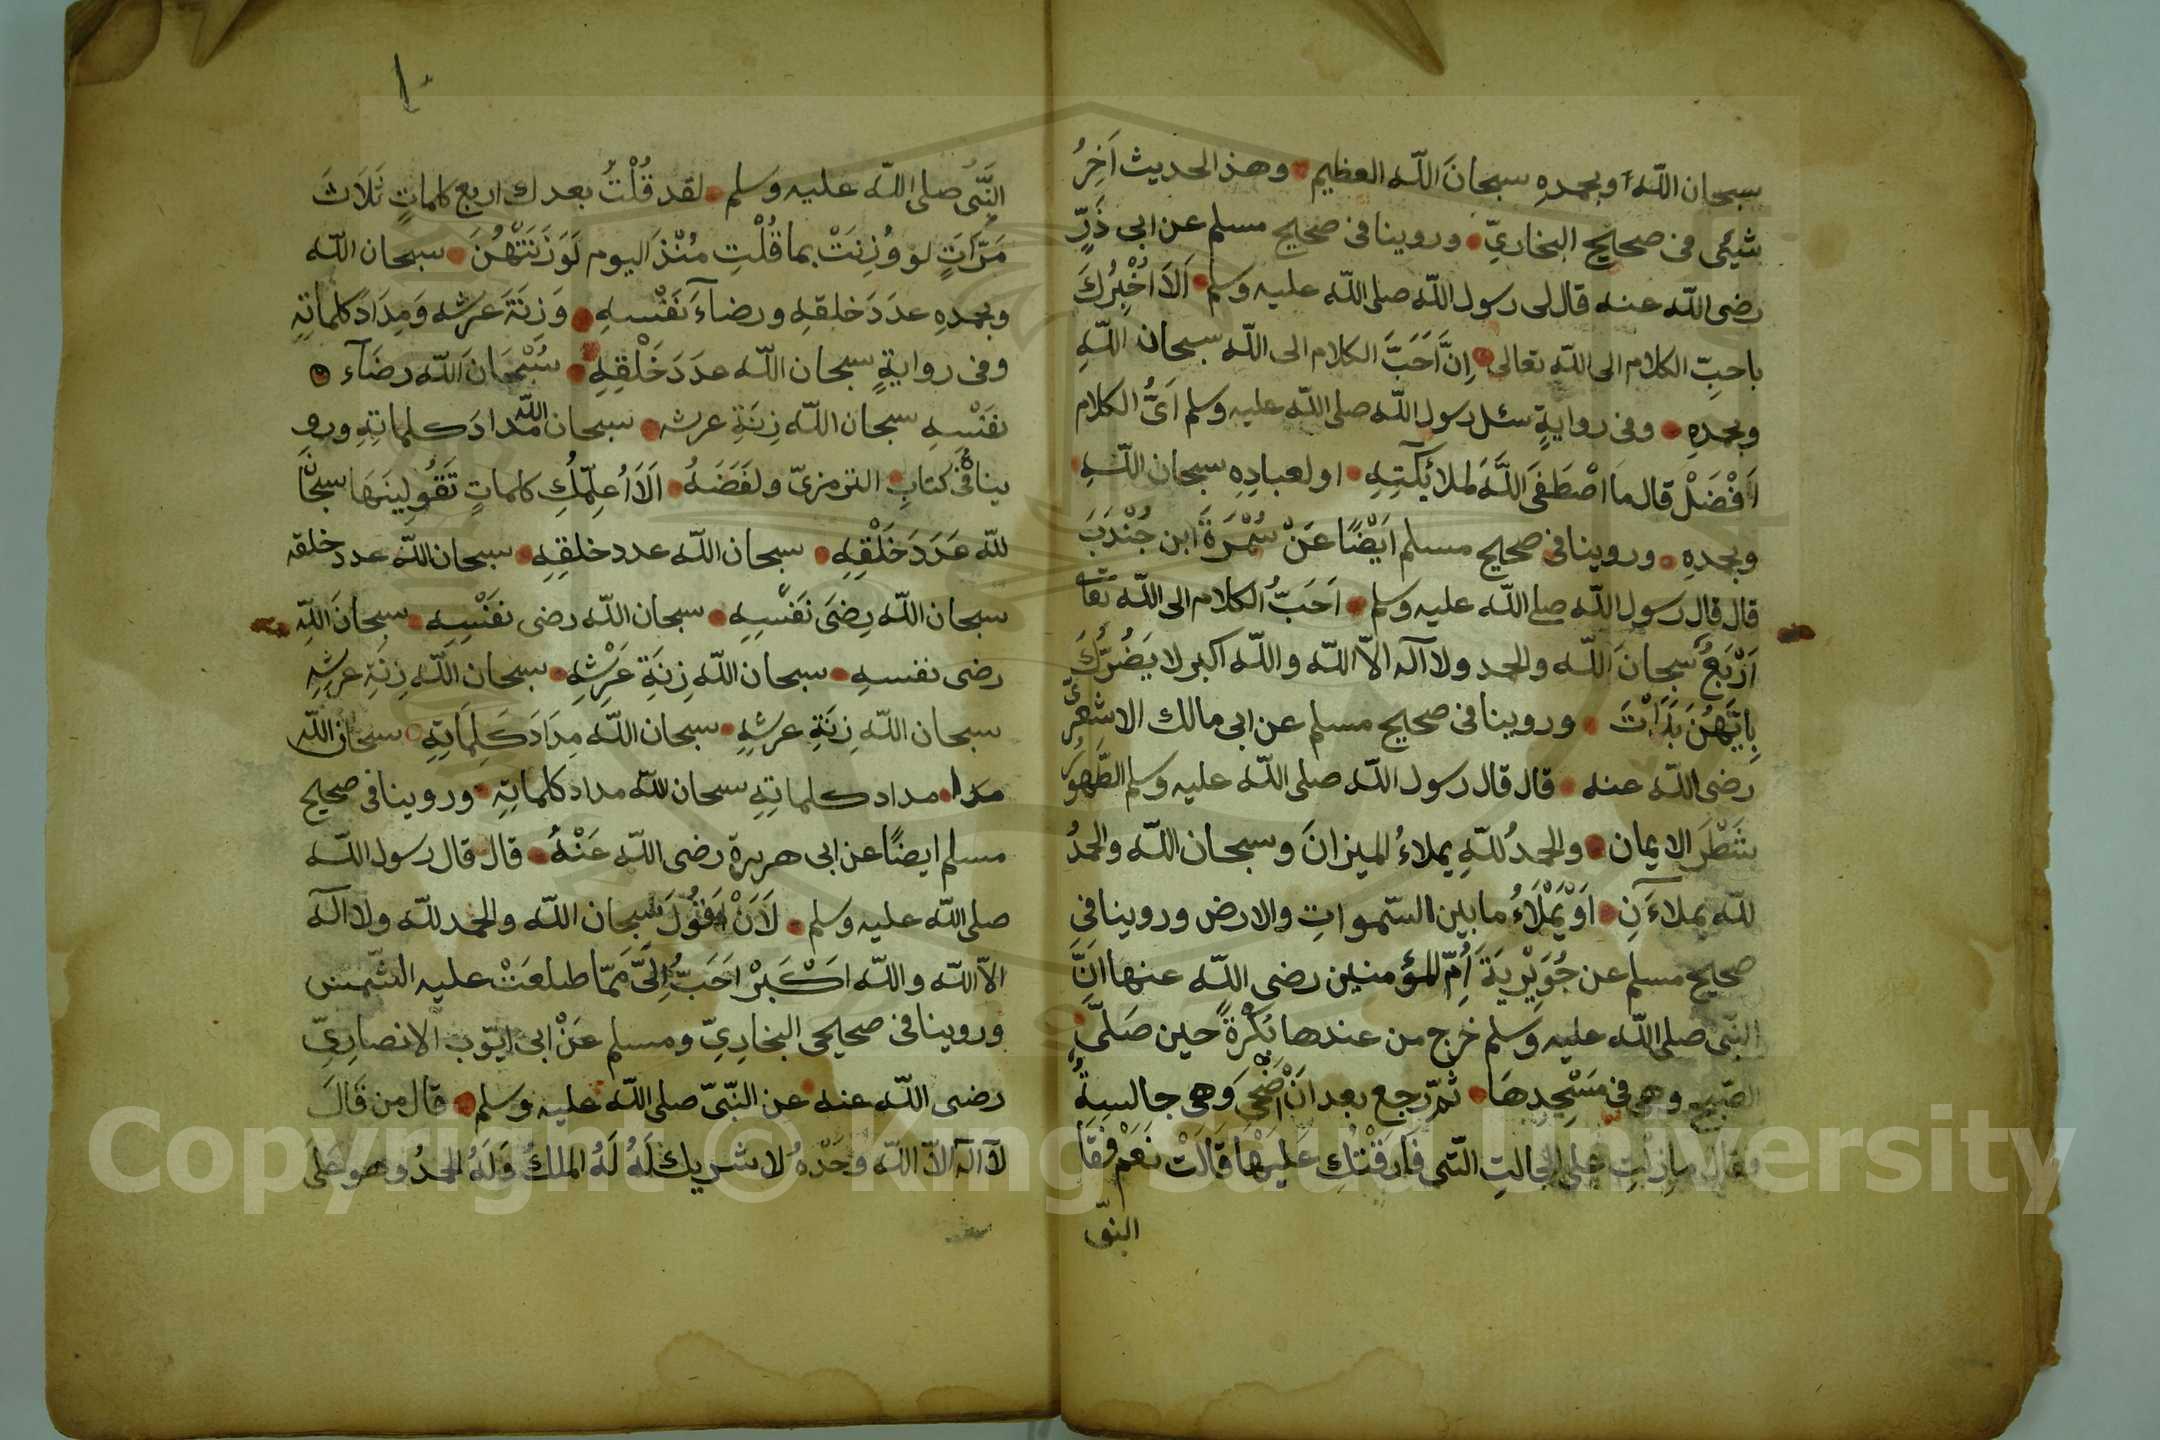 سبحان اللّه وبحمدِهِ سبحانَ اللّه العظيم وهذا لحديث آخِرُ
شيئى فى صحايح البخاريّ وروينا فى صحايح مسلم عن ابى ذَرٍّ
رضى اللّه عنه قال لى رسول اللّه صلى اللّه عليه وسلم اَلَا اُخْبِرُكَ
باحبّ الكلام الى اللّه تعالى اِنَّ اَحَبَّ الكلام الى اللّه سبحان اللّهِ
وبحمدِهِ وفى روايةٍ سئل رسول اللّه صلى اللّه عليه وسلم اَىُّ الكلام
اَفْضَلْ قال مَا اصْطَفَى اللَّهَ لملائكتِهِ او لعبادِهِ سبحان اللّهِ
وبحمدِهِ وروينا فى صحايح مسلم اَيْضًا عَنْ سُمْرَةَ ابن جُنْدَبَ
قال قال رسول اللّه صلى اللّه عليه وسلم اَحَبُّ الكلام الى اللّه تعا
اَرْبَعُ سبحانَ اللّه والحمد ولا اله الاّ اللّه واللّه اكبر لا يَضُرُّكَ
بِايِّهُنَ بَدَاْتَ وروينا فى صحايح مسلم عن ابى مالك الاشعرىّ
رضى اللّه عنه قال قال رسول اللّه صلى اللّه عليه وسلم الطَّهور
شَطْرَ الايمان والحمدُ للّهِ يملاءُ الميزانَ وسبحان اللّه والحمدُ
للّه يملاءَنِ اَوْ يَمْلَاءُ ما بين السّموات والارض وروينا فى
صحايح مسلم عن جُوَيْرِيَةَ اُمّ المؤمنين رضى اللّه عنها انَّ
النبّى صلى اللّه عليه وسلم خرج من عندها بُكْرَةً حين صَلَّى
الصّبح وهى فى مَسْجِدِهَا ثمّ رجع بعد اَنْ اَضْحَى وَهى جالسةٌ
فقال مازلتِ على الحالتِ التّى فَارَقْتُكِ عَلَيْهَا قَالَتْ نَعَمْ فقَا
النبىّ
١٠
النَّبِّىُ صلى اللّه عليه وسلم لقد قُلْتُ بعدك اربع كلماتٍ ثَلَاثَ
مَرَّاتٍ لو وُزِنَتْ بما قُلْتِ مُنْذُ اليوم لَوَزَنَتْهُنَ سبحان اللّه
وبحمدِهِ عدَدَ خلقهِ ورضاءَ نَفْسِهِ وَزِنَةَ عَرشه وَمِدَادَ كلماتِهِ
وفى روايةٍ سبحان اللّه عدَدَ خَلْقِهِ سُبْحَانَ اللّه رضَآء
نفَسْهِ سبحان اللّه زِنَةِ عرشه سبحان اللّه مدادَ كلماتِهِ ورو
ينا فى كتابِ الترمزىّ ولفَضَهُ اَلَا اُعلِّمُكِ كلماتٍ تَقُولِينَهَا سبحَانَ
للّه عَدَدَ خَلْقِهِ سبحان اللّه عدد خلقِهِ سبحان اللّه عدد خلقه
سبحان اللّه رِضَى نَفْسِهِ سبحان اللّه رضى نفَسْهِ سبحانَ اللّهِ
رضى نفسهِ سبحان اللّه زِنَةِ عَرْشِهِ سبحان اللّه زِنَةِ عرشِهِ
سبحان اللّه زِنَةِ عرشِهِ سبحان اللّه مِدَادَ كَلِمَاتِهِ سبحان اللّه
مدا مداد كلماتِهِ سبحان للّه مداد كلماتِهِ وروينا فى صحايح
مسلم ايضًا عن ابى هريرة رضى اللّه عَنْهُ قال قال رسول اللّه
صلى اللّه عليه وسلم لَاَنْ اَقُولَ سبحان اللّه والحمد للّه ولا اله
الاّ اللّه واللّه اَكْبَرْ اَحَبُّ اِلَىَّ مِمّا طلعَتْ عليه الشّمس
وروينا فى صحايحى البخارىِّ ومسلم عَنْ ابى ايّوب الانصارِىّ
رضى اللّه عنه عن النبّىّ صلى اللّه عليه وسلم قال من قَالَ
لآ اله الاّ اللّه وَحْدَهُ لا شريك لَهُ لَهُ الملكُ وَلَهُ الحمدُ وهو على
Copyright © King Saud University